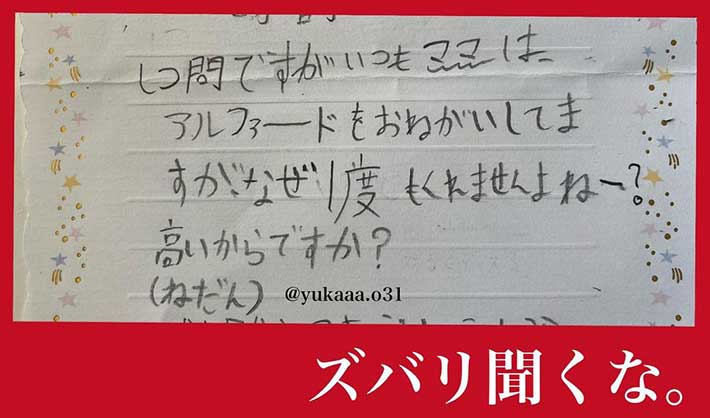 しつ問ですがいつもママは、
アルファードをおねがいしてま
すが、なぜ1度もくれませんよねー?
高いからですか?
(ねだん)
@yukaaa.o31
ズバリ聞くな。